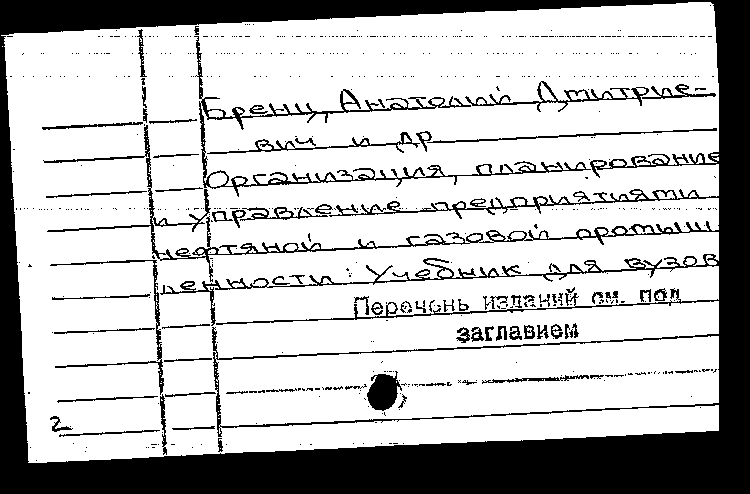 Бренц, Анатолий Дмитрие-
вич и др
Организация, планирование
и управление предприятиями
нефтяной и газовой промыш
ленности: Учебник для вузов
Перечень изданий см. под
заглавием
2